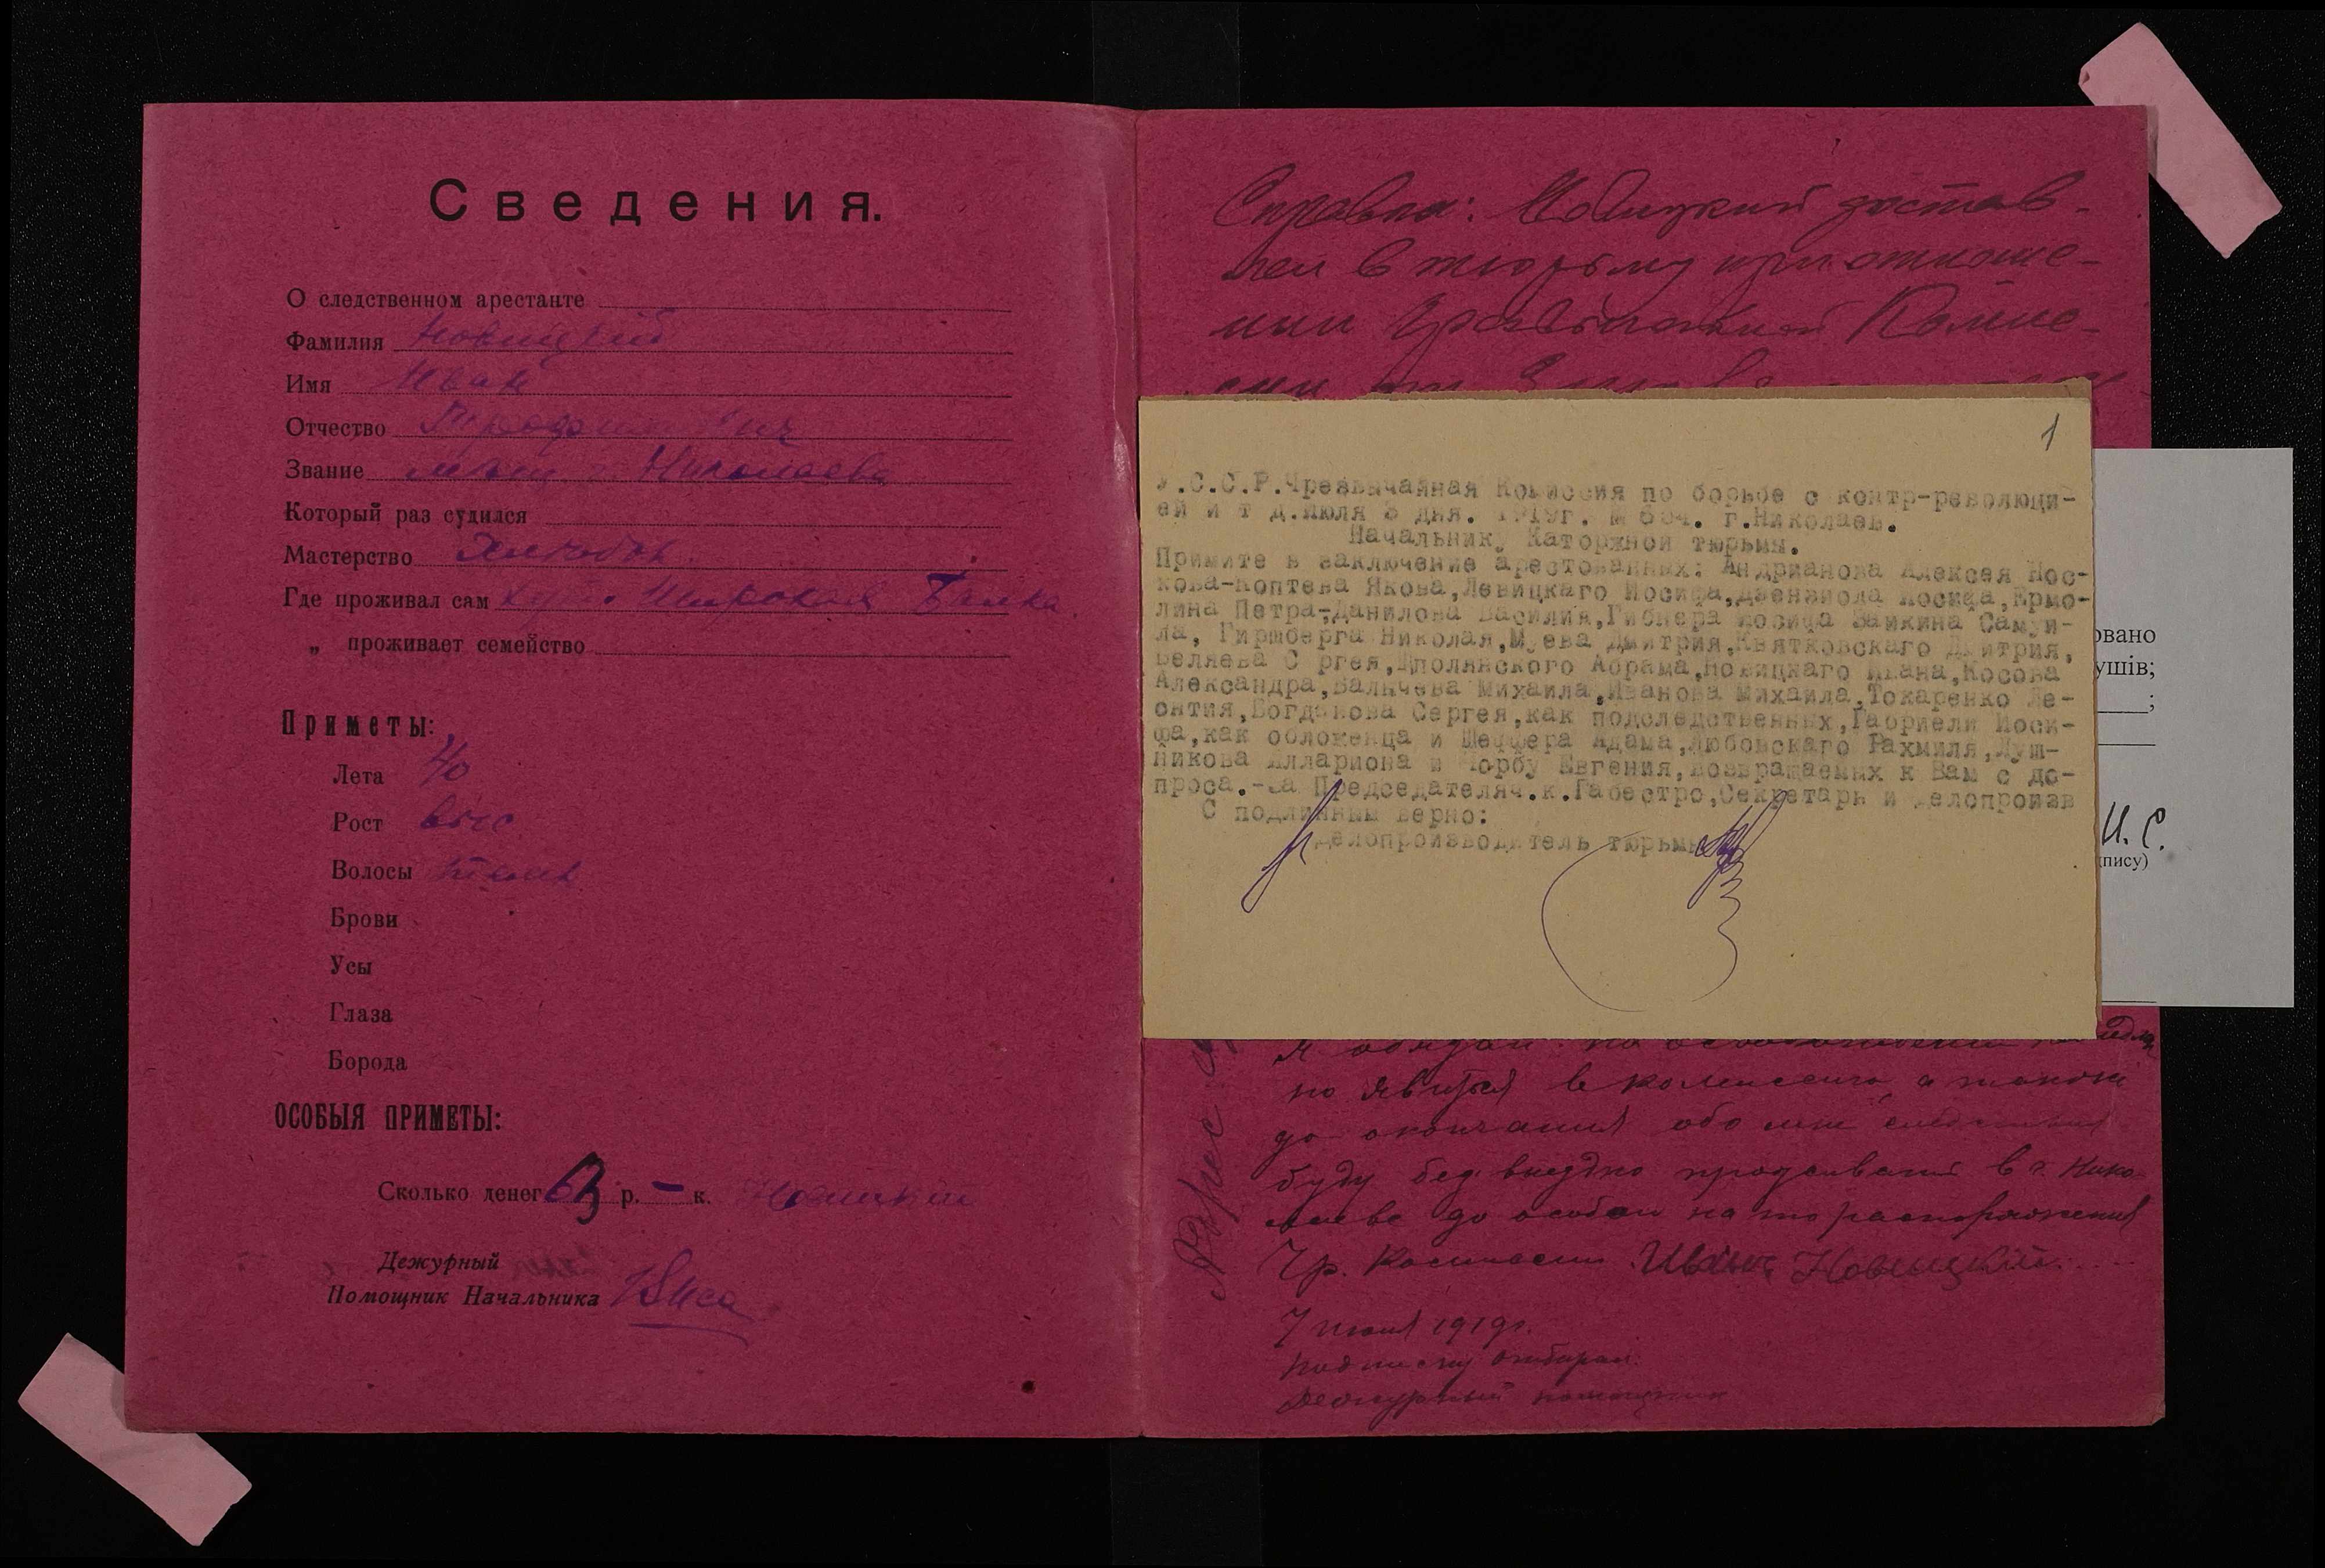 Сведения.
О следственном арестанте
Фамилия Новицкий
Имя Иван
Отчество
Звание мещ. г. Николаева
Который раз судился
Мастерство Хлебоп.
Где проживал сам хут. Широкая Балка
„ проживает семейство
Приметы:
Лета 40
Рост выс
Волосы
Брови
Усы
Глаза
Борода
ОСОБЫЯ ПРИМЕТЫ:
Сколько денег 63 р. – к. Новицкий
Дежурный
Помощник Начальника
Справка: Новицкий достав-
лен в тюрьму при отноше-
нии Чрезвычайной Комис-
сии
1
У.С.С.Р.Чрезвычайная Комиссия по борьбе с контр-революци-
ей и т д.Июля 3 дня. 1919г. № г.Николаев.
Начальнику Каторжной тюрьмы.
Примите в заключение арестованных: Андрианова Алексея Нос-
кова-Коптева Якова,Левицкаго Иосифа, Иосифа,Ермо-
лина Петра-Данилова Василия,Гибнера Иосифа Зайкина Самуи-
ла, Гиршберга Николая, Дмитрия,Квятковскаго Дмитрия,
Беляева С ргея,Шполянского Абрама,Новицкаго Ивана,Косова
Александра,Балычева Михаила,Иванова Михаила,Токаренко Ле-
онтия,Богданова Сергея,как подследственных,Габриели Иоси-
фа,как обложенца и Шеффера Адама,Любовскаго Рахмиля,Луш-
никова Иллариона и Чорбу Евгения,возвращаемых к Вам с до-
проса.-За Председателяч.к.Габестро,Секретарь и делопроизв
С подлинным верно:
делопроизводитель тюрьмы
овано
ушів;
;
И. С.
пису)
Адрес
я обязан по освобождении
но явиться в комиссию, а также
до окончания обо мне следствия
буду безвыездно проживать в г. Нико-
лаеве до особаго на то распоряжения
Чр. Комиссии Иван Новицкий
7 июля 1919г.
Подписку отбирал:
Дежурный помощник